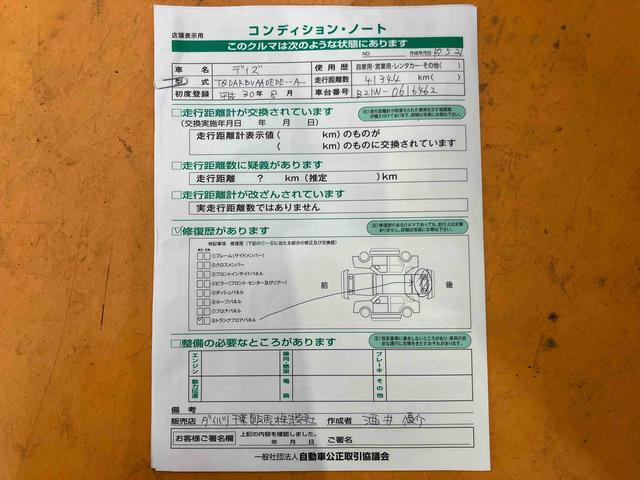 店頭表示用
コンディション・ノート
このクルマは次のような状態にあります
NO.
作成年月日
車名 デイズ 使用歴 自家用・営業用・レンタカー・その他( )
型式 走行距離数 41344 km( )
初度登録 平成 30年 8月 車台番号 B21W-0616462
□走行距離計が交換されています
(交換実施年月日 年 月 日)
走行距離計表示値( km)のものが
( km)のものに交換されています
□走行距離数に疑義があります
走行距離 ? km(推定 )km
□走行距離計が改ざんされています
実走行距離数ではありません
☑修復歴があります
特記事項 修復歴(下記の①~⑧に当たる部分の修正及び交換歴)
修正 交換
①フレーム(サイドメンバー)
②クロスメンバー
③フロントインサイドパネル
④ピラー(フロント・センター及びリアー)
⑤ダッシュパネル
⑥ルーフパネル
⑦フロアパネル
⑧トランクフロアパネル
前 後
□整備の必要なところがあります
エンジン 操向・懸架 ブレーキ
動力伝達 電装 その他
備考
販売店 ダイハツ千葉販売株式会社 作成者 酒井 優介
お客様ご署名欄 上記の内容を確認しました。
年 月 日 ご署名
一般社団法人 自動車公正取引協議会